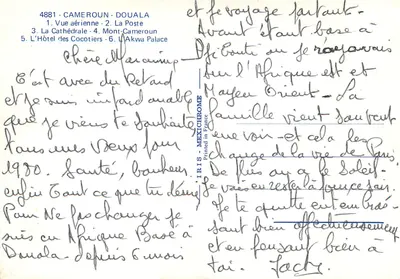 4881 - CAMEROUN - DOUALA
1. Vue aérienne - 2. La Poste
3. La Cathédrale - 4. Mont-Cameroun
5. L'Hôtel des Cocotiers - 6. L'Akwa Palace
Chère
C'est avec du Retard
et je suis impardonnable
que je viens te souhaiter
tous mes vœux pour
1980. Santé, bonheur
enfin tout ce que tu désires
Pour ne pas changer je
suis en Afrique Basé à
Douala depuis 6 mois
IRIS - MEXICHROME
Printed in
et je voyage partout.
Avant étant basé à
Djibouti ou je rayonnais
sur l'Afrique est et
Moyen Orient - La
famille vient souvent
me voir - et cela les
change de la vie de Paris.
De plus ay a le Soleil -
Je vais en rester là pour ce soir.
Je te quitte en t'embras-
sant bien affectueusement
et en pensant bien à
toi. Jacky